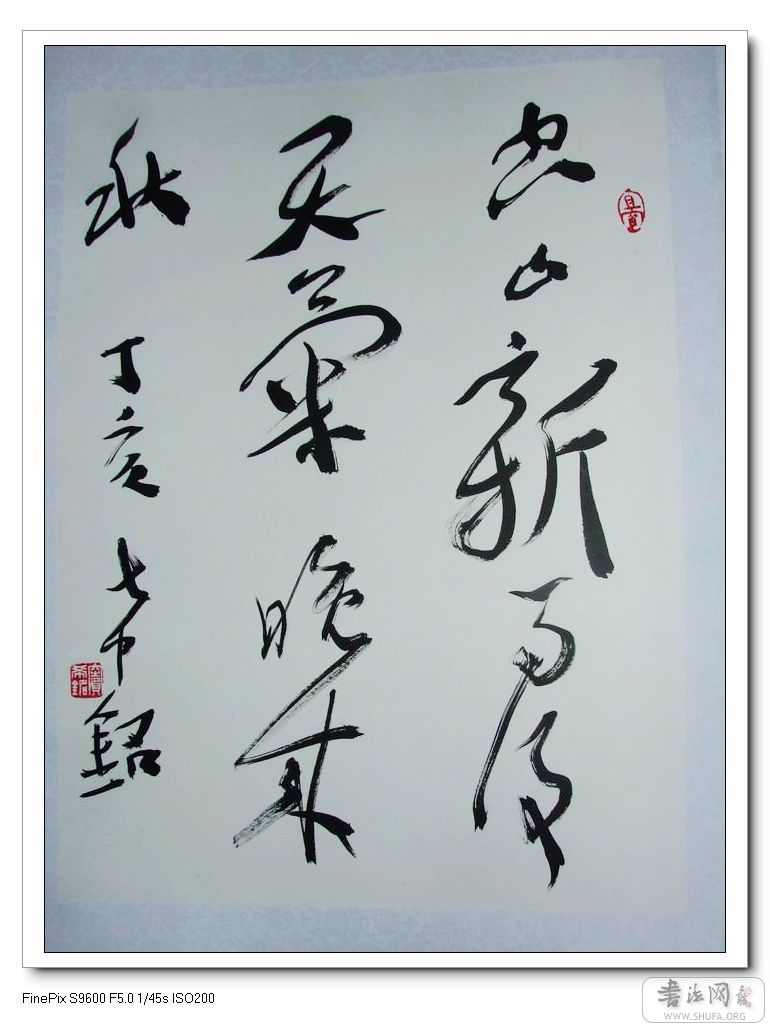 空山新雨後
天氣晚來
秋 丁亥 希銘
竇希銘
FinePix S9600 F5.0 1/45s ISO200
书法网
WWW.SHUFA.ORG